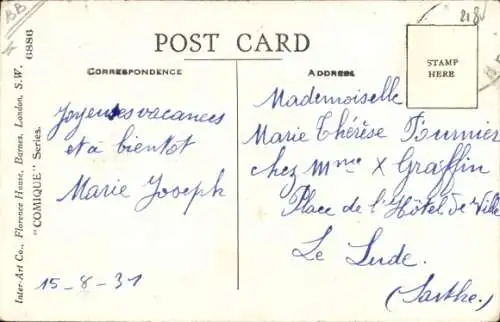 BB
218
POST CARD
CORRESPONDENCE
ADDRESS
STAMP
HERE
Joyeuses vacances
et à bientôt
Marie Joseph
15-8-31
Mademoiselle
Marie Thérèse Fournier
chez Mme X Graffin
Place de l'Hôtel de Ville
Le Lude.
(Sarthe)
Inter-Art Co., Florence House, Barnes, London, S.W.
"COMIQUE" Series.
6886